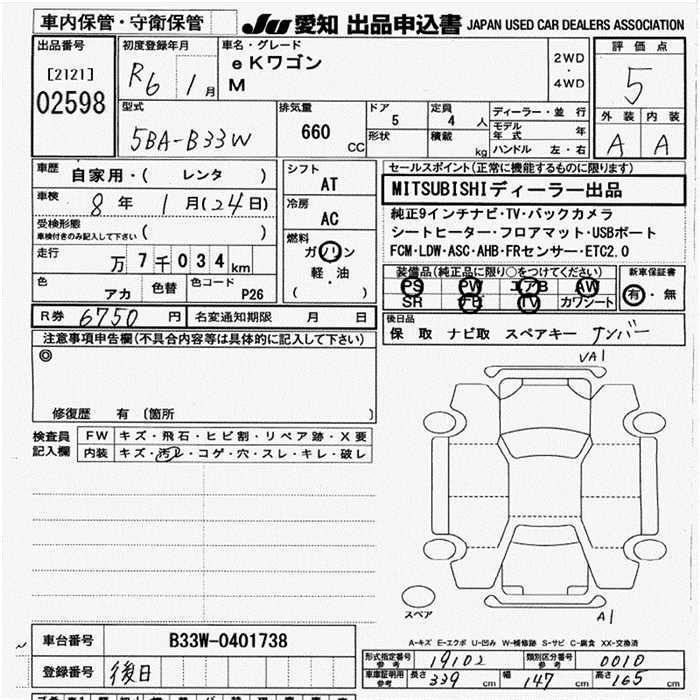 車内保管・守衛保管
JU 愛知 出品申込書 JAPAN USED CAR DEALERS ASSOCIATION
出品番号
[2121]
02598
初度登録年月
R6 1月
車名・グレード
eKワゴン
M
2WD
・
4WD
評価点
5
外装 内装
A A
型式
5BA-B33W
排気量
660 CC
ドア
5
形状
定員
4 人
積載
kg
ディーラー・並行
モデル年式 年
ハンドル 左・右
車歴
自家用・( レンタ )
車検
8年 1月(24日)
受検形態
車検付きのみ記入して下さい ( )
走行
万7千034km
色
アカ
色替
色コード
P26
シフト
AT
冷房
AC
燃料
ガソリン
軽・油
( )
セールスポイント(正常に機能するものに限ります)
MITSUBISHIディーラー出品
純正9インチナビ・TV・バックカメラ
シートヒーター・フロアマット・USBポート
FCM・LDW・ASC・AHB・FRセンサー・ETC2.0
装備品(純正品に限り○をつけてください)
PS PW エアB AW
SR TV カワシート
新車保証書
有・無
R券 6750円
名変通知期限 月 日
後日品
保 取 ナビ取 スペアキー ナンバー
注意事項申告欄(不具合内容等は具体的に記入して下さい)
◎
修復歴 有 (箇所 )
検査員記入欄
FW キズ・飛石・ヒビ割・リペア跡・X要
内装 キズ・汚レ・コゲ・穴・スレ・キレ・破レ
VA1
スペア
A1
A-キズ E-エクボ U-凹み W-補修跡 S-サビ C-腐食 XX-交換済
車台番号 B33W-0401738
登録番号 後日
形式指定番号 参考 19102
類別区分番号 参考 0010
車庫証明用 参考 長さ 339 cm 幅 147 cm 高さ 165 cm